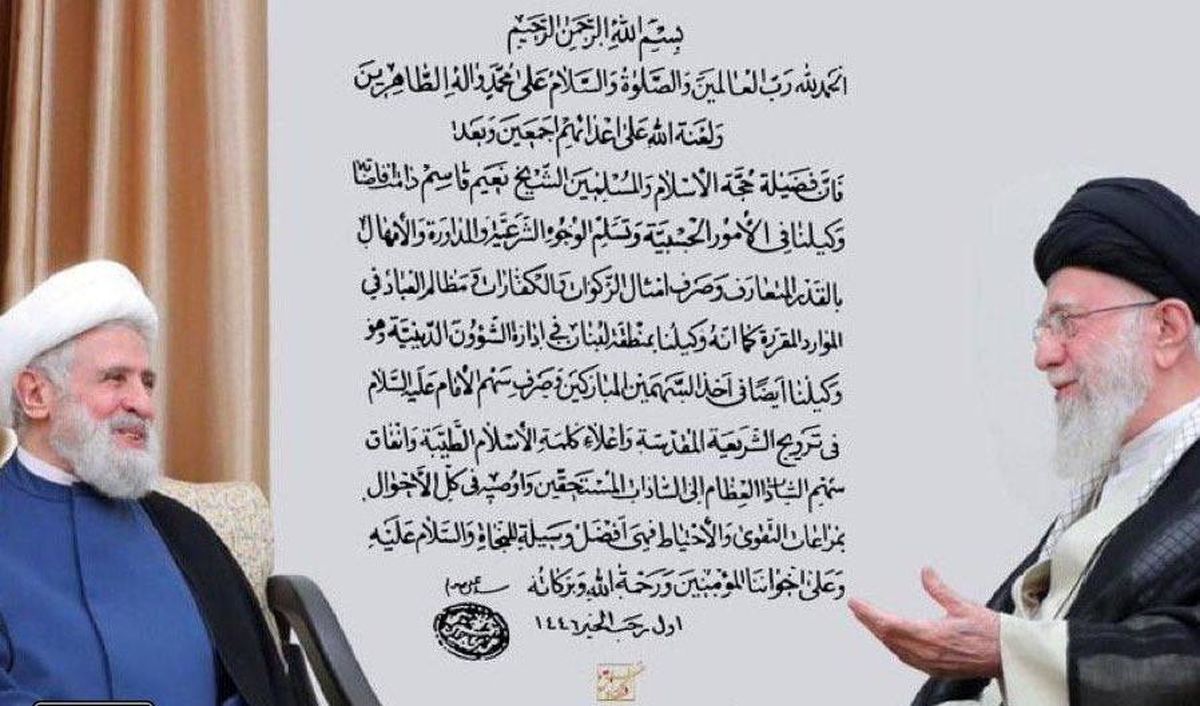 بِسْمِ اللهِ الرَّحْمٰنِ الرَّحِیْمِ
الحمدلله رَبّ العالمینَ وَالصَّلوةُ وَالسَّلامُ عَلیٰ مُحَمَّدٍ وَآلهِ الطَّاهِرینَ
وَلَعْنَة اللهِ عَلیٰ اَعْدائِهِم اَجْمَعینَ وَبَعدُ
فَاِنَّ فَضیلَة حُجَّة الْاسْلام وَالْمُسْلِمینَ الشَّیْخ نَعیم قاسِم دٰامَتْ افاضاتُه
وَکیلنا فی الْاُمُور الْحِسْبیَّة وَتَسَلُّمِ الوُجوُهِ الشَّرعیَّة وَالمداوَرَة وَالْاِمْهال
بالقَدْرِ المتعارف وَصَرف امثال الزَّکوات وَالکفّارات وَمَظالم العِباد فی
الموارد المقررة کما انّهُ وَکیلنا بمنطقة لبنان فی اِدارة الشّؤون الدّینیّة وَهُوَ
وَکیلنا ایضًا فی اَخذ السَّهمین المبارَکین وَصَرف سَهم الْامام عَلَیهِ السَّلام
فی تَرویج الشّریعَة المقدّسَة وَاعْلاءِ کلمة الْاسْلام الطّیّبَة وَانفاق
سَهم السّادة العِظام الی السّادات المُسْتَحقّین وَاوُصیهِ فی کلِّ الْاَحْوال
بمراعات التّقوی وَالْاحْتیاط فهیَ اَفْضَل وَسیلَةٍ لِلنّجاةِ وَالسّلام عَلَیْهِ
وَعَلیٰ اخوانِنا المؤمِنینَ وَرَحْمَةُ اللهِ وَبَرَکاتُه
اول رجب الخیر ١٤٤٦